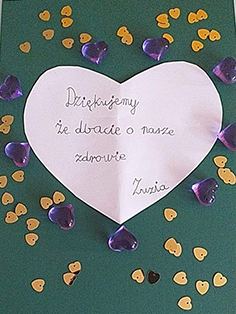 Dziękujemy
że dbacie o nasze
zdrowie
Zuzia